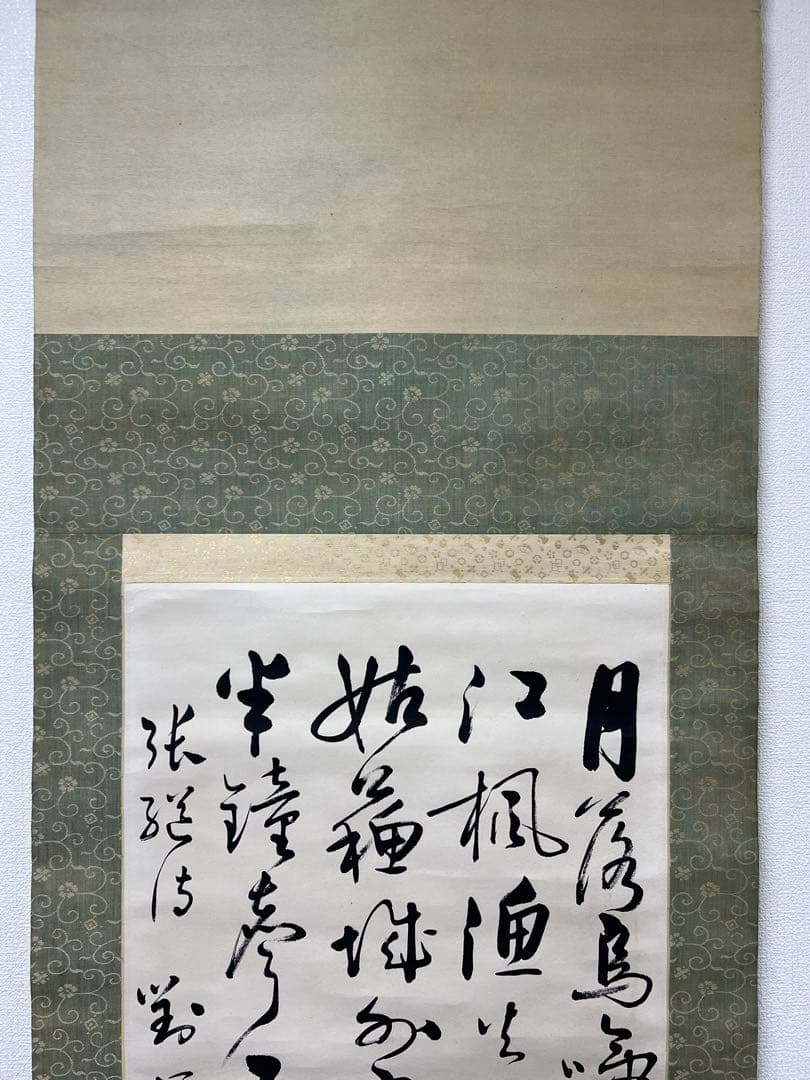 月落烏啼
江楓漁火
姑蘇城外
半鐘聲
張繼詩